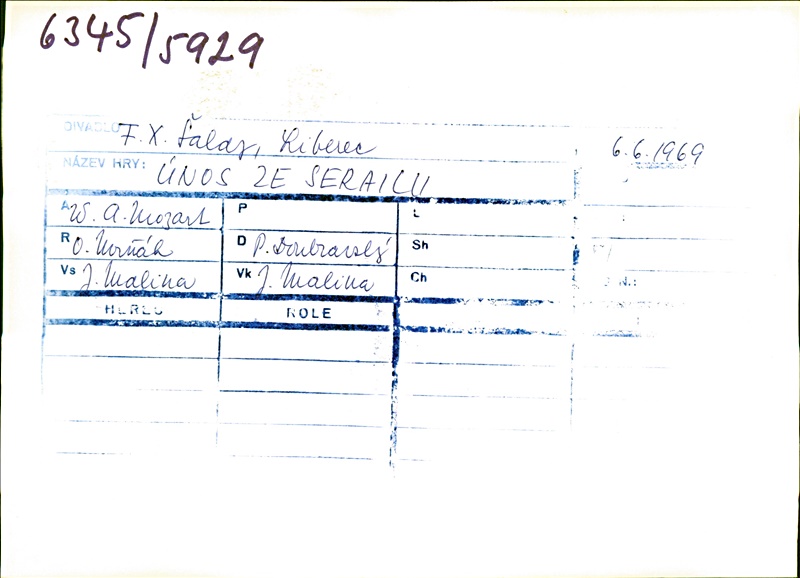 6345/5929
DIVADLO F. X. Šaldy, Liberec 6.6.1969
NÁZEV HRY: ÚNOS ZE SERAILU
A W. A. Mozart P L
R O. D P. Doubravský Sh
Vs J. Malina Vk J. Malina Ch
HEREC ROLE